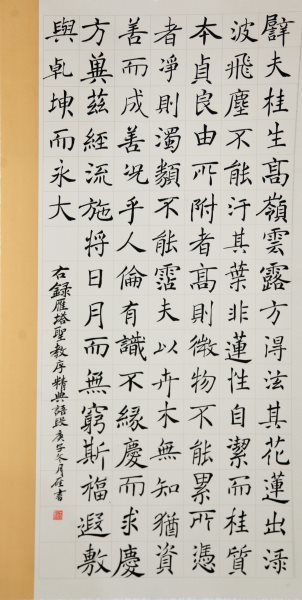 譬夫桂生高嶺雲露方得泫其花蓮出淥
波飛塵不能汙其葉非蓮性自潔而桂質
本貞良由所附者高則微物不能累所憑
者淨則濁類不能霑夫以卉木無知猶資
善而成善況乎人倫有識不緣慶而求慶
方冀茲經流施將日月而無窮斯福遐敷
與乾坤而永大
右録雁塔聖教序精典語段庚子冬月書